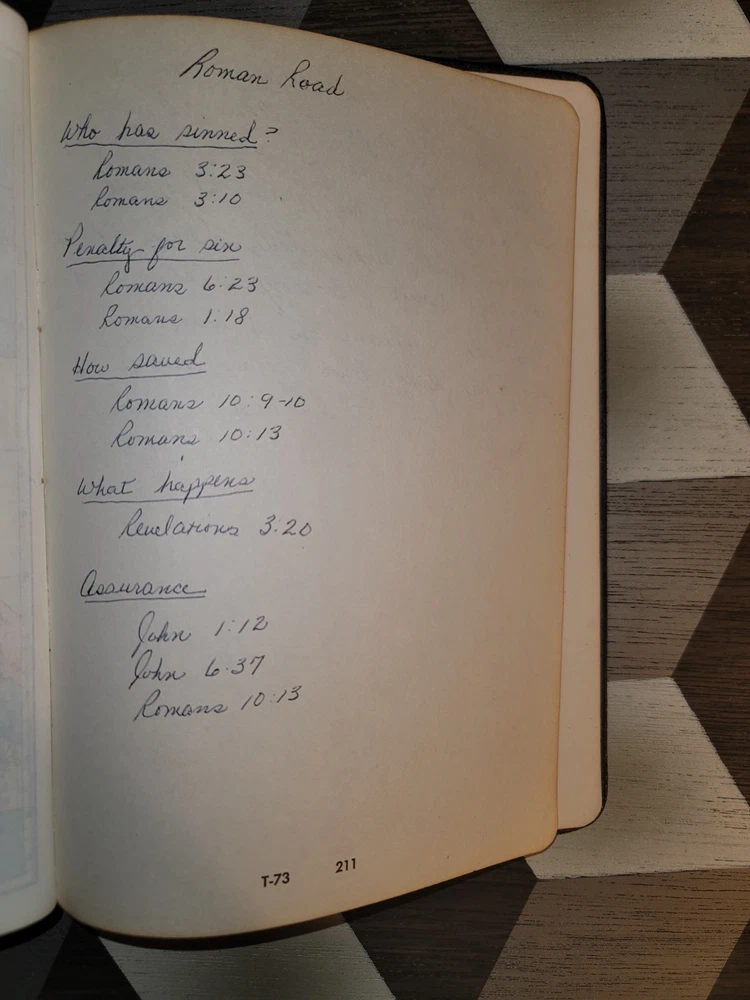 Roman Road
Who has sinned?
Romans 3:23
Romans 3:10
Penalty for sin
Romans 6:23
Romans 1:18
How saved
Romans 10:9-10
Romans 10:13
What happens
Revelations 3:20
Assurance
John 1:12
John 6:37
Romans 10:13
T-73 211